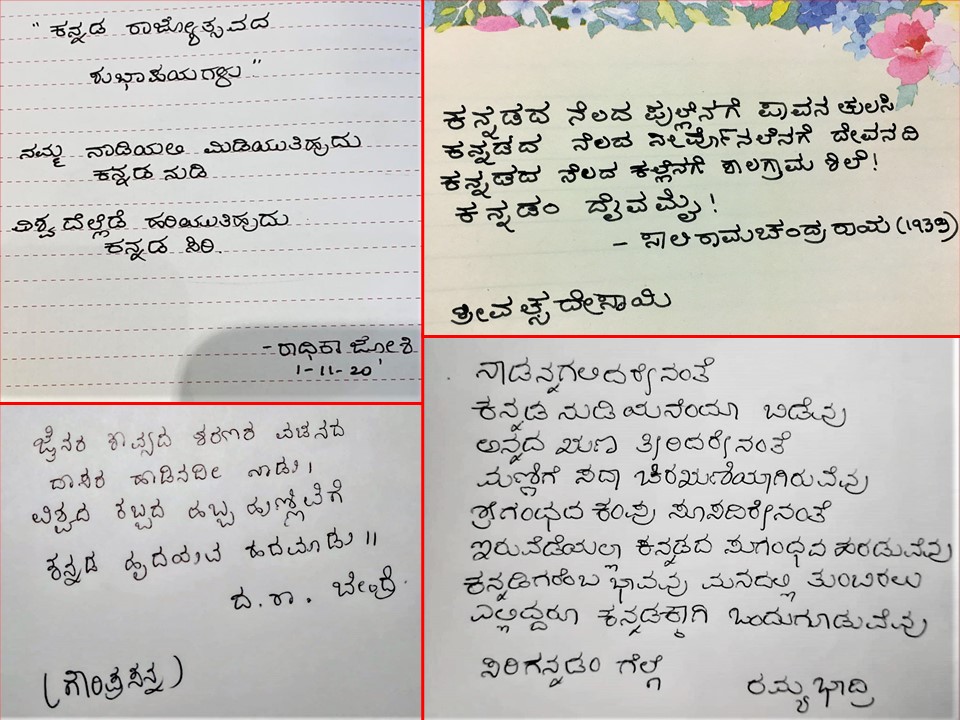 "ಕನ್ನಡ ರಾಜ್ಯೋತ್ಸವದ
ಶುಭಾಷಯಗಳು"
ನಮ್ಮ ನಾಡಿಯಲಿ ಮಿಡಿಯುತಿಹುದು
ಕನ್ನಡ ನುಡಿ
ವಿಶ್ವದೆಲ್ಲೆಡೆ ಹರಿಯುತಿಹುದು
ಕನ್ನಡ ಸಿರಿ.
- ರಾಧಿಕಾ ಜೋಶಿ
1-11-20
ಕನ್ನಡದ ನೆಲದ ಪುಲ್ಲೆನಗೆ ಪಾವನ ತುಲಸಿ
ಕನ್ನಡದ ನೆಲದ ನೀರ್ವೊನಲೆನಗೆ ದೇವನದಿ
ಕನ್ನಡದ ನೆಲದ ಕಲ್ಲೆನಗೆ ಶಾಲಗ್ರಾಮ ಶಿಲೆ!
ಕನ್ನಡಂ ದೈವಮೈ!
- ಸಾಲಿ ರಾಮಚಂದ್ರ ರಾಯ (೧೯೩೩)
ಶ್ರೀವತ್ಸ ದೇಸಾಯಿ
ಜೈನರ ಕಾವ್ಯದ ಶರಣರ ವಚನದ
ದಾಸರ ಹಾಡಿನದೀ ನಾಡು ।
ವಿಶ್ವದ ಕಬ್ಬದ ಹಬ್ಬ ಹುಣ್ಣಿವೆಗೆ
ಕನ್ನಡ ಹೃದಯವ ಹದಮಾಡು ॥
ದ. ರಾ. ಬೇಂದ್ರೆ.
(ಗೌರಿಪ್ರಸನ್ನ)
ನಾಡನ್ನಗಲಿದರೇನಂತೆ
ಕನ್ನಡ ನುಡಿಯನೆಂದೂ ಬಿಡೆವು
ಅನ್ನದ ಋಣ ತೀರಿದರೇನಂತೆ
ಮಣ್ಣಿಗೆ ಸದಾ ಚಿರಋಣಿಯಾಗಿರುವೆವು
ಶ್ರೀಗಂಧದ ಕಂಪು ಸೂಸದಿರೇನಂತೆ
ಇರುವೆಡೆಯಲ್ಲಾ ಕನ್ನಡದ ಸುಗಂಧವ ಹರಡುವೆವು
ಕನ್ನಡಿಗರೆಂಬ ಭಾವವು ಮನದಲ್ಲಿ ತುಂಬಿರಲು
ಎಲ್ಲಿದ್ದರೂ ಕನ್ನಡಕ್ಕಾಗಿ ಒಂದುಗೂಡುವೆವು
ಸಿರಿಗನ್ನಡಂ ಗೆಲ್ಗೆ
ರಮ್ಯ ಭಾದ್ರಿ